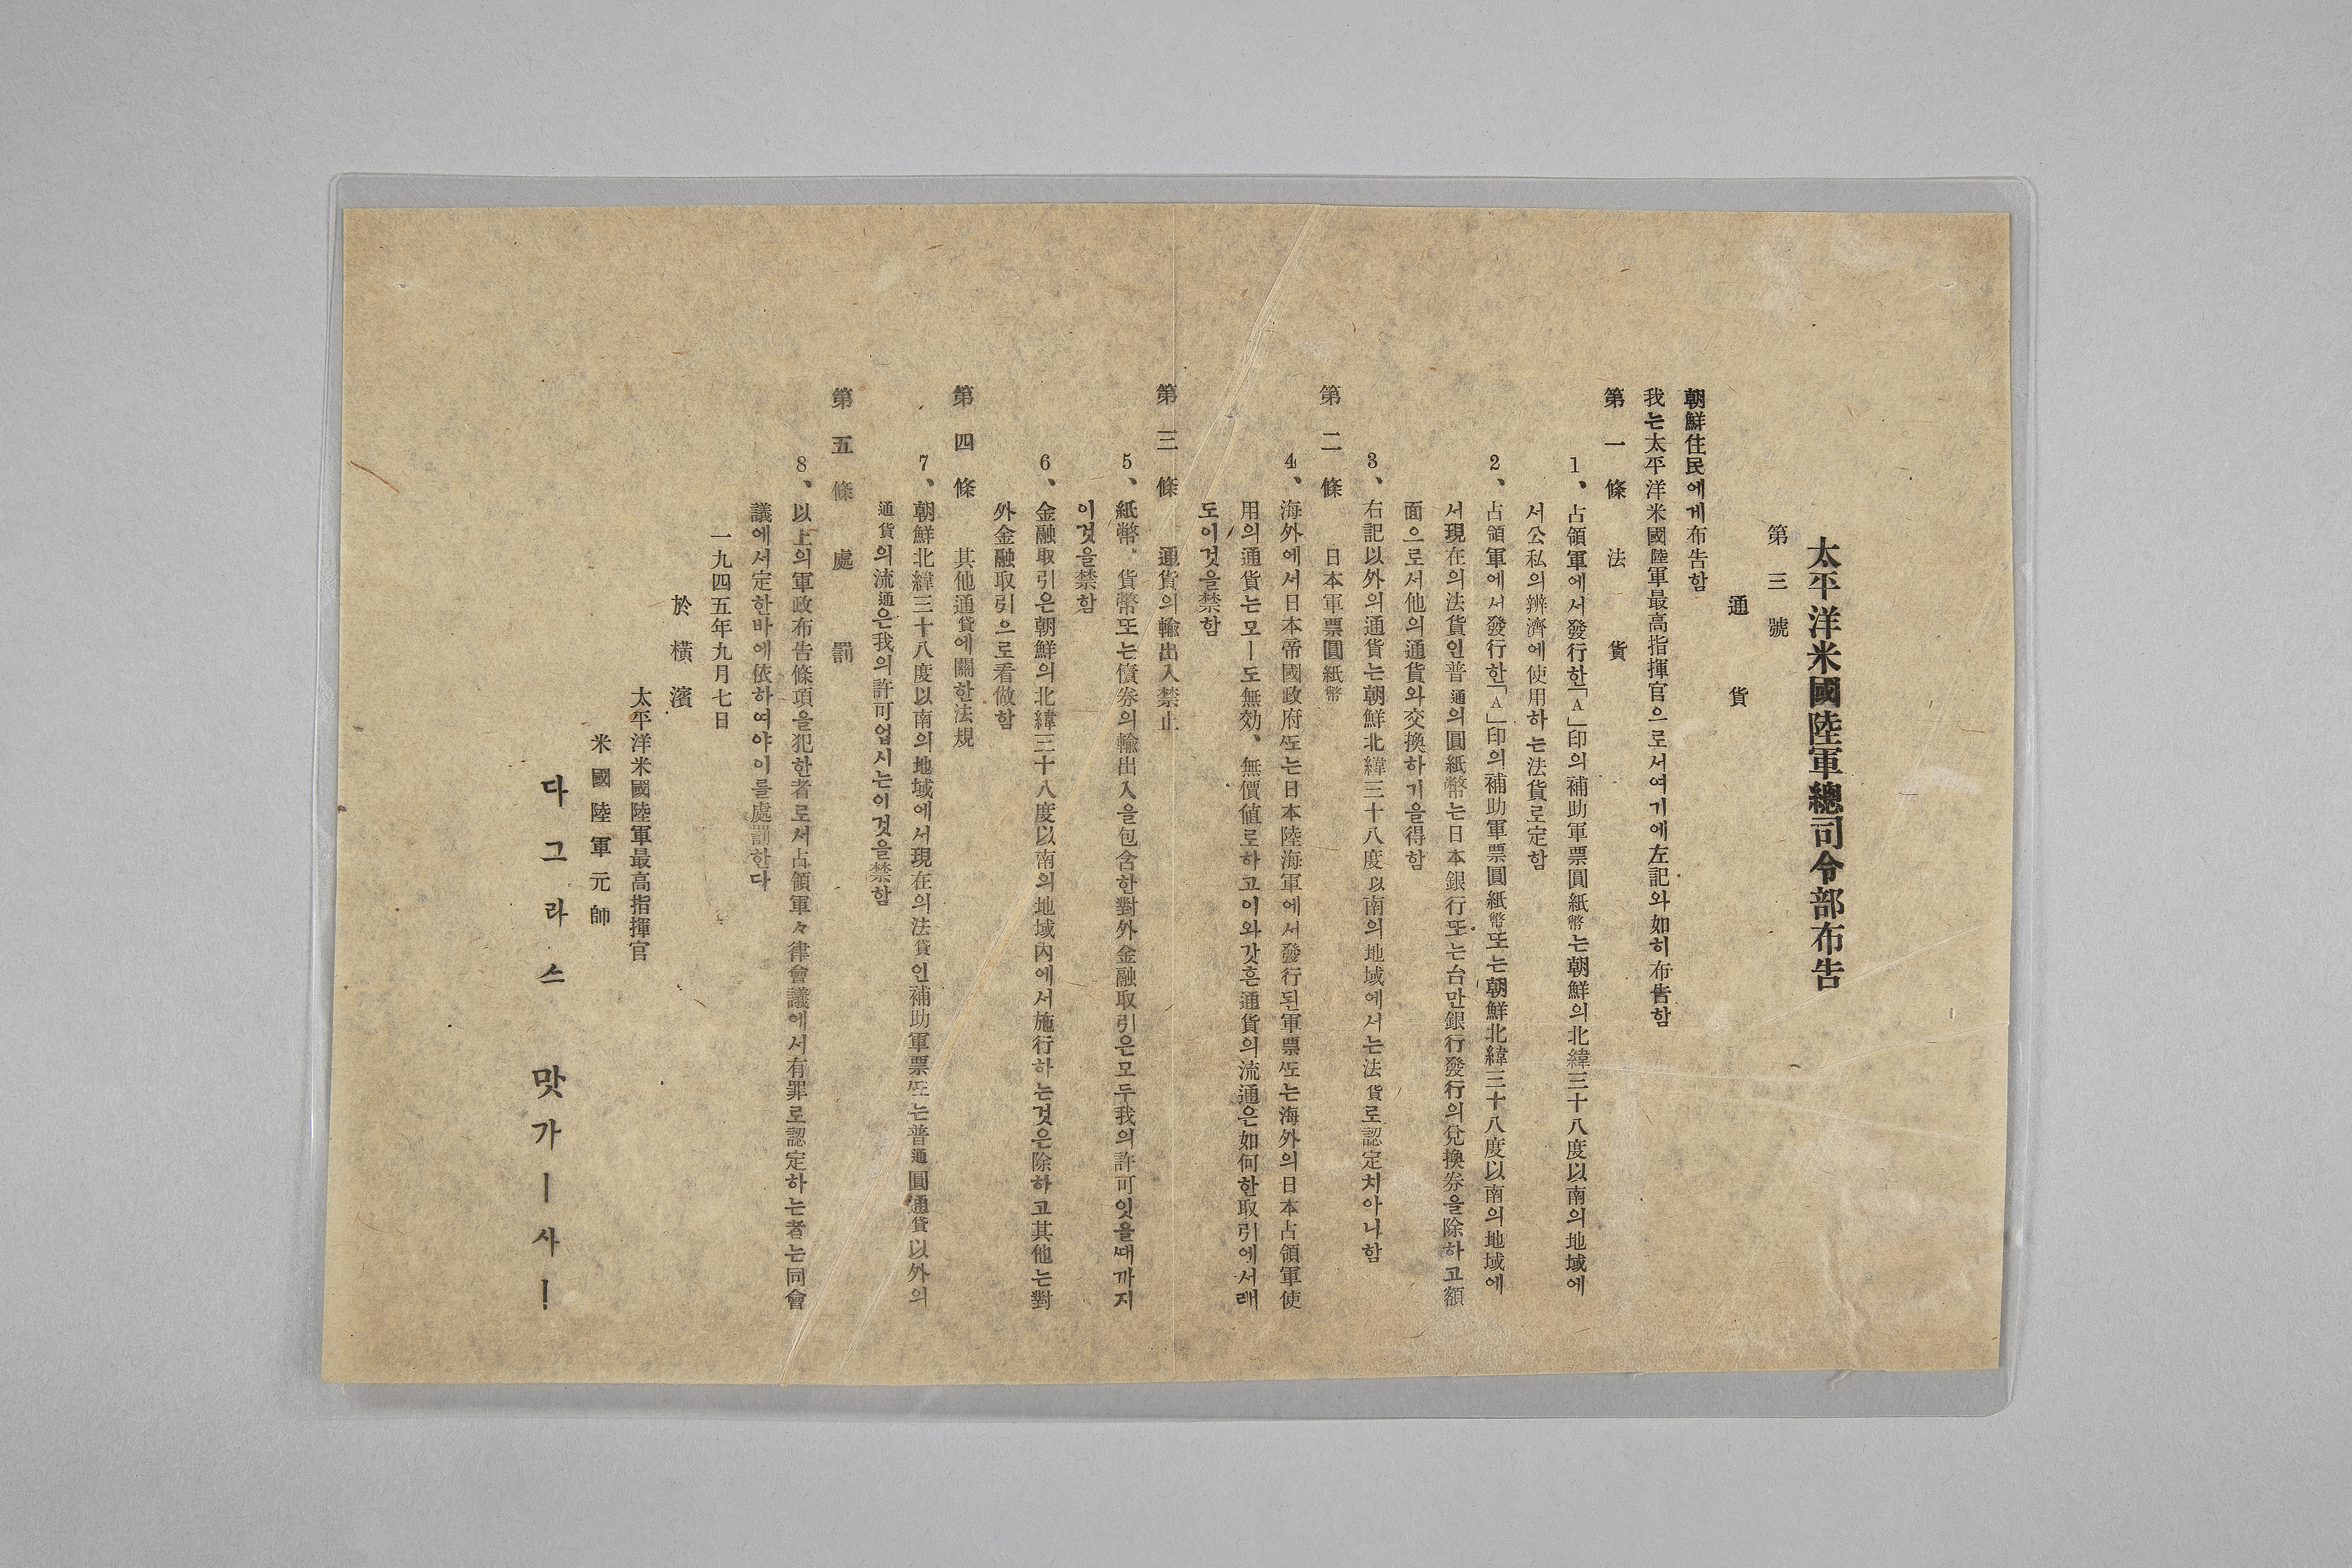 太平洋米國陸軍總司令部布告
第三號
通貨
朝鮮住民에게布告함
我는太平洋米國陸軍最高指揮官으로서여기에左記와如히布告함
第一條 法貨
1、占領軍에서發行한「A」印의補助軍票圓紙幣는朝鮮의北緯三十八度以南의地域에
서公私의辨濟에使用하는法貨로定함
2、占領軍에서發行한「A」印의補助軍票圓紙幣또는朝鮮北緯三十八度以南의地域에
서現在의法貨인普通의圓紙幣는日本銀行또는台만銀行發行의兌換券을除하고額
面으로서他의通貨와交換하기을得함
3、右記以外의通貨는朝鮮北緯三十八度以南의地域에서는法貨로認定치아니함
第二條 日本軍票圓紙幣
4、海外에서日本帝國政府또는日本陸海軍에서發行된軍票또는海外의日本占領軍使
用의通貨는모ー도無効、無價値로하고이와갓흔通貨의流通은如何한取引에서래
도이것을禁함
第三條 通貨의輸出入禁止
5、紙幣、貨幣또는債券의輸出入을包含한對外金融取引은모두我의許可잇을때까지
이것을禁함
6、金融取引은朝鮮의北緯三十八度以南의地域內에서施行하는것은除하고其他는對
外金融取引으로看做함
第四條 其他通貨에關한法規
7、朝鮮北緯三十八度以南의地域에서現在의法貨인補助軍票또는普通圓通貨以外의
通貨의流通은我의許可업시는이것을禁함
第五條 處罰
8、以上의軍政布告條項을犯한者로서占領軍々律會議에서有罪로認定하는者는同會
議에서定한바에依하여야이를處罰한다
一九四五年九月七日
於橫濱
太平洋米國陸軍最高指揮官
米國陸軍元帥
다그라스 맛가ー사ー